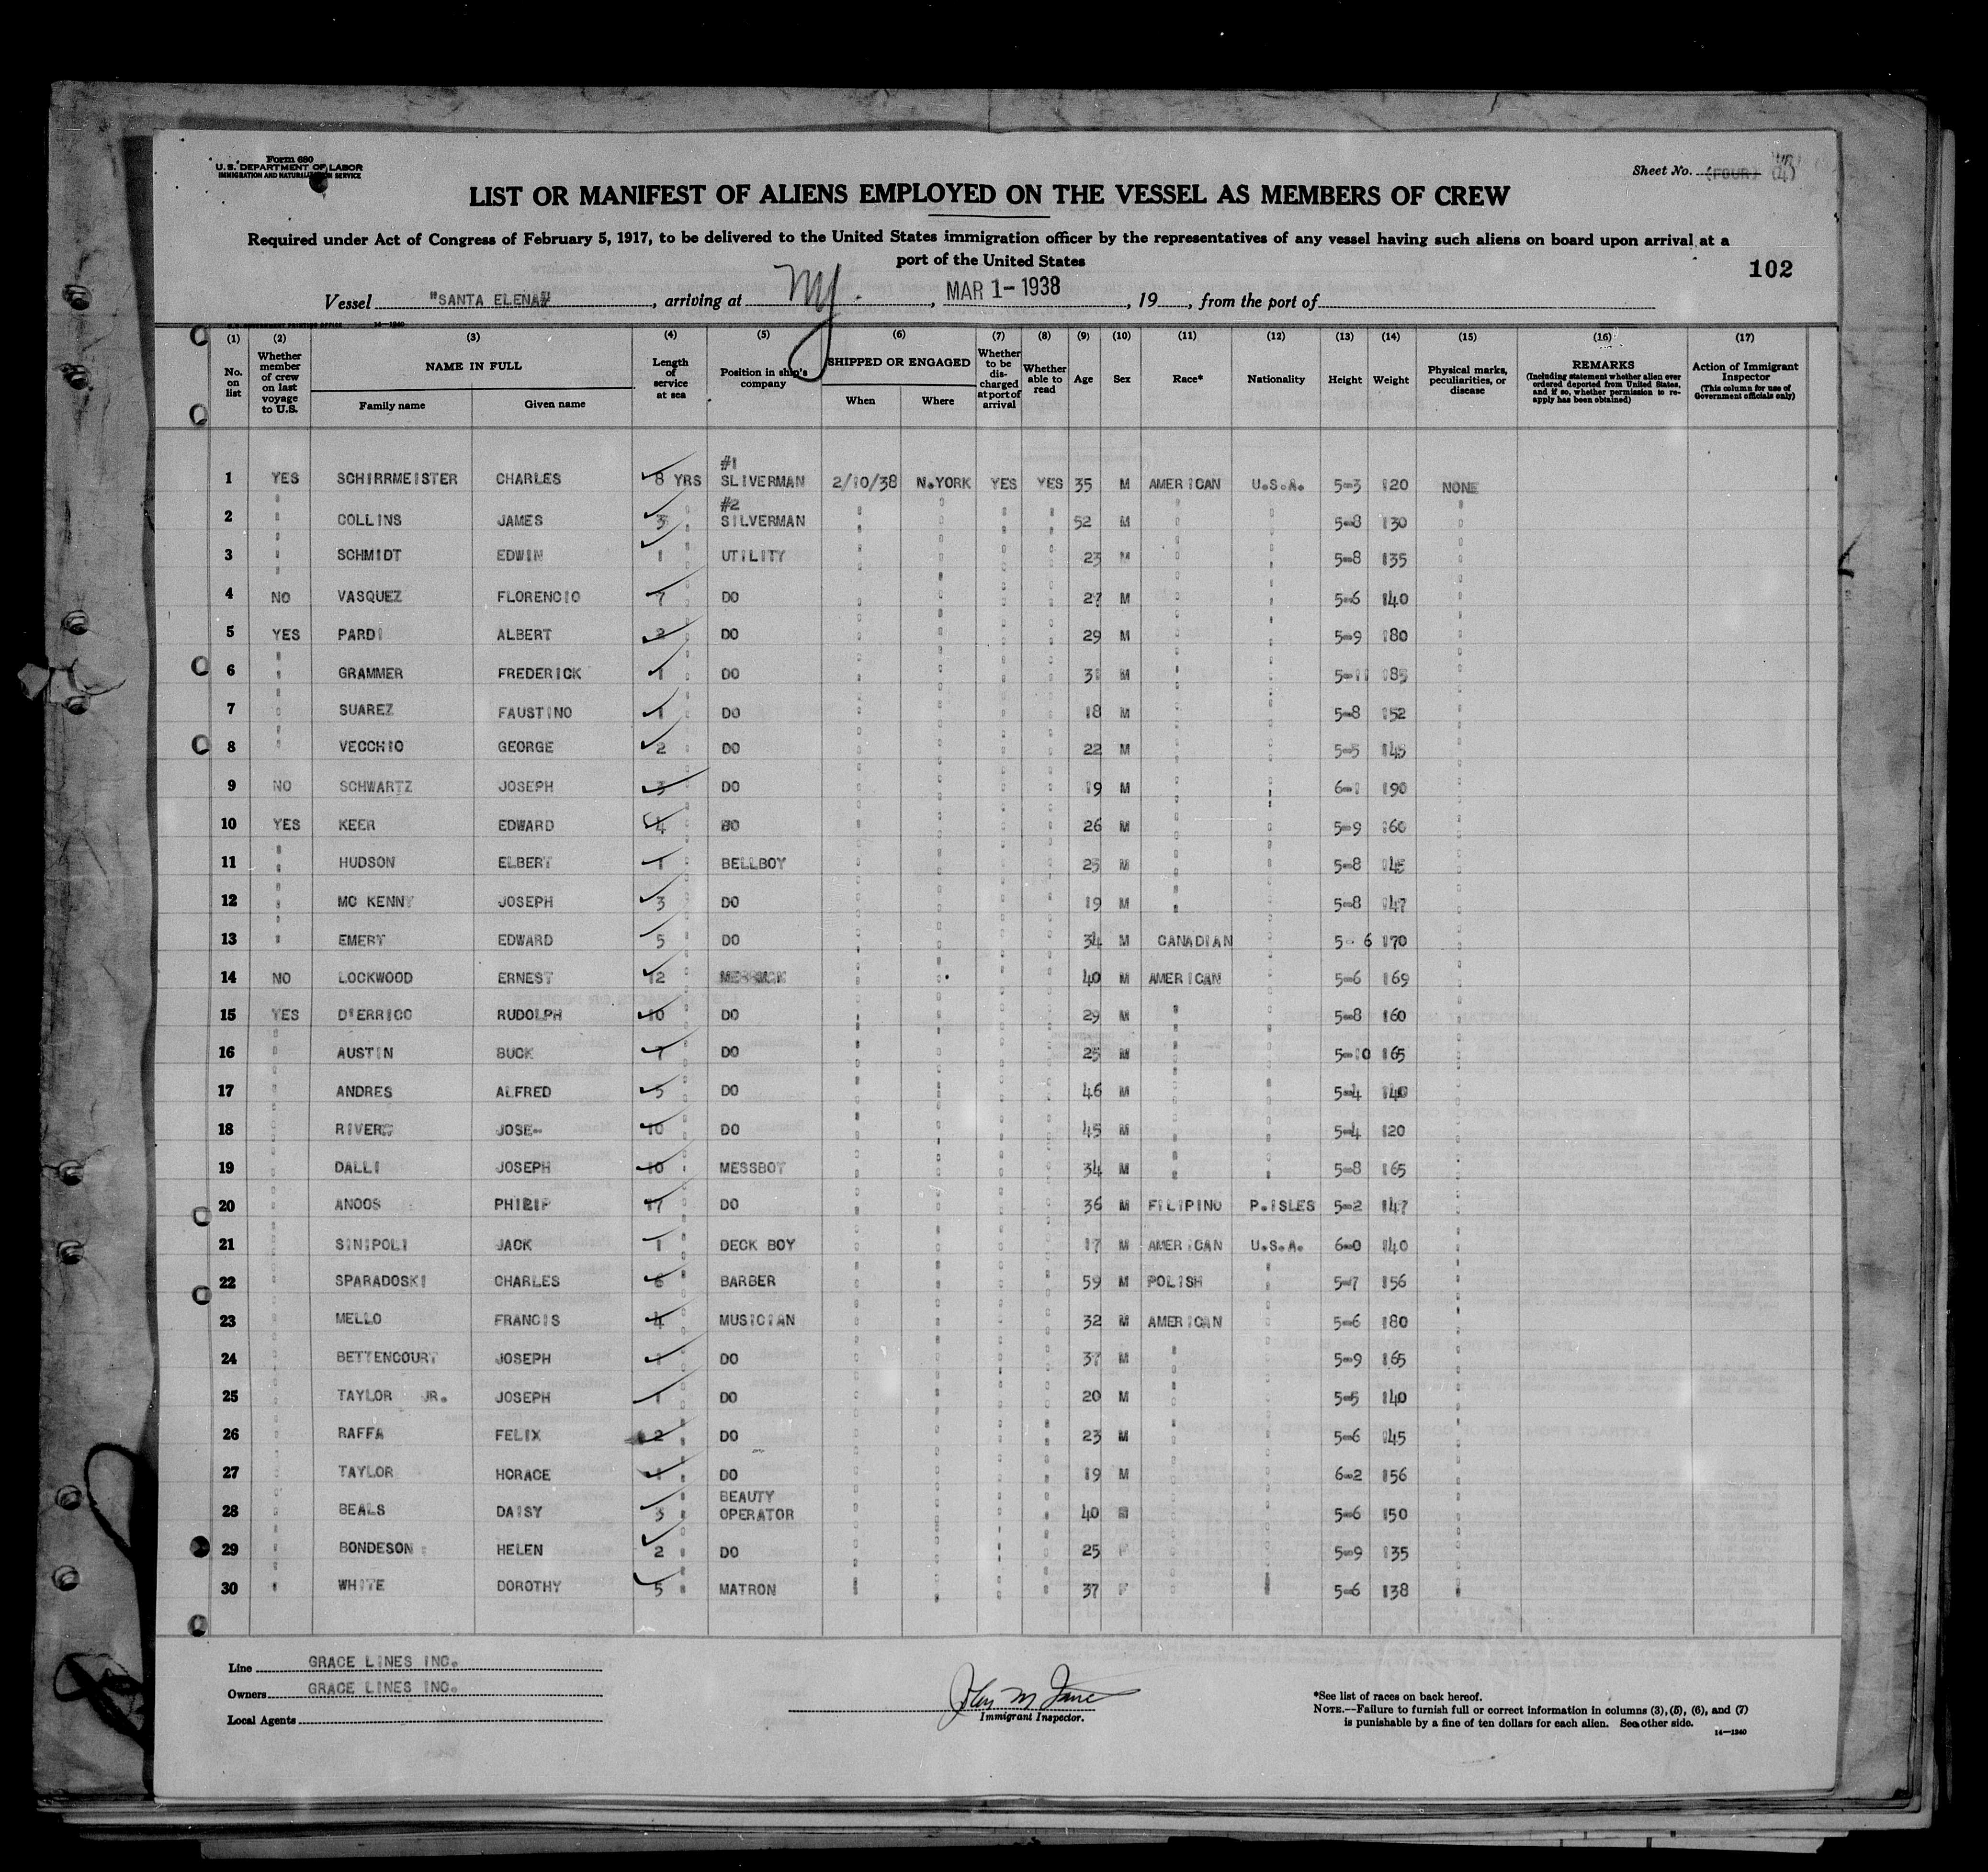 Form 680
U. S. DEPARTMENT OF LABOR
IMMIGRATION AND NATURALIZATION SERVICE
Sheet No. (FOUR) (4)
LIST OR MANIFEST OF ALIENS EMPLOYED ON THE VESSEL AS MEMBERS OF CREW
Required under Act of Congress of February 5, 1917, to be delivered to the United States immigration officer by the representatives of any vessel having such aliens on board upon arrival at a
port of the United States
102
Vessel "SANTA ELENA" , arriving at Ny. , MAR 1- 1938 , 19 , from the port of
U.S. GOVERNMENT PRINTING OFFICE 14—1240
(1) (2) (3) (4) (5) (6) (7) (8) (9) (10) (11) (12) (13) (14) (15) (16) (17)
No. on list
Whether member of crew on last voyage to U.S.
NAME IN FULL
Family name Given name
Length of service at sea
Position in ship's company
SHIPPED OR ENGAGED
When Where
Whether to be discharged at port of arrival
Whether able to read
Age Sex Race* Nationality Height Weight
Physical marks, peculiarities, or disease
REMARKS
(Including statement whether alien ever ordered deported from United States, and if so, whether permission to re-apply has been obtained)
Action of Immigrant Inspector
(This column for use of Government officials only)
1 YES SCHIRRMEISTER CHARLES 8 YRS #1 SLIVERMAN 2/10/38 N.YORK YES YES 35 M AMERICAN U.S.A. 5-3 120 NONE
2 " COLLINS JAMES 3 " #2 SILVERMAN " " " " 52 M " " 5-8 130 "
3 " SCHMIDT EDWIN 1 " UTILITY " " " " 23 M " " 5-8 135 "
4 NO VASQUEZ FLORENCIO 7 " DO " " " " 27 M " " 5-6 140 "
5 YES PARDI ALBERT 2 " DO " " " " 29 M " " 5-9 180 "
6 " GRAMMER FREDERICK 1 " DO " " " " 31 M " " 5-11 185 "
7 " SUAREZ FAUSTINO 1 " DO " " " " 18 M " " 5-8 152 "
8 " VECCHIO GEORGE 2 " DO " " " " 22 M " " 5-5 145 "
9 NO SCHWARTZ JOSEPH 3 " DO " " " " 19 M " " 6-1 190 "
10 YES KEER EDWARD 4 " DO " " " " 26 M " " 5-9 160 "
11 " HUDSON ELBERT 1 " BELLBOY " " " " 25 M " " 5-8 145 "
12 " MC KENNY JOSEPH 3 " DO " " " " 19 M " " 5-8 147 "
13 " EMERY EDWARD 5 " DO " " " " 34 M CANADIAN " 5- 6 170 "
14 NO LOCKWOOD ERNEST 12 " " " " " 40 M AMERICAN " 5-6 169 "
15 YES D'ERRICO RUDOLPH 10 " DO " " " " 29 M " " 5-8 160 "
16 " AUSTIN BUCK 7 " DO " " " " 25 M " " 5-10 165 "
17 " ANDRES ALFRED 5 " DO " " " " 46 M " " 5-4 140 "
18 " RIVERA JOSE- 10 " DO " " " " 45 M " " 5-4 120 "
19 " DALLI JOSEPH 10 " MESSBOY " " " " 34 M " " 5-8 165 "
20 " ANOOS PHILIP 17 " DO " " " " 36 M FILIPINO P.ISLES 5-2 147 "
21 " SINIPOLI JACK 1 " DECK BOY " " " " 17 M AMERICAN U.S.A. 6-0 140 "
22 " SPARADOSKI CHARLES 6 " BARBER " " " " 59 M POLISH " 5-7 156 "
23 " MELLO FRANCIS 4 " MUSICIAN " " " " 32 M AMERICAN " 5-6 180 "
24 " BETTENCOURT JOSEPH 1 " DO " " " " 37 M " " 5-9 165 "
25 " TAYLOR JR. JOSEPH 1 " DO " " " " 20 M " " 5-5 140 "
26 " RAFFA FELIX 2 " DO " " " " 23 M " " 5-6 145 "
27 " TAYLOR HORACE 1 " DO " " " " 19 M " " 6-2 156 "
28 " BEALS DAISY 3 " BEAUTY OPERATOR " " " " 40 " " 5-6 150 "
29 " BONDESON HELEN 2 " DO " " " " 25 F " " 5-9 135 "
30 " WHITE DOROTHY 5 " MATRON " " " " 37 F " " 5-6 138 "
Line GRACE LINES INC.
Owners GRACE LINES INC.
Local Agents
Immigrant Inspector.
*See list of races on back hereof.
NOTE.—Failure to furnish full or correct information in columns (3), (5), (6), and (7)
is punishable by a fine of ten dollars for each alien. See other side.
14—1240